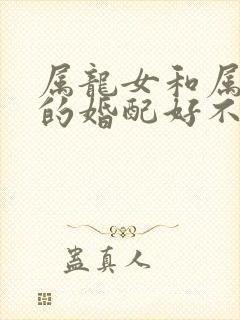 属龍女和属
的婚配好不
蛊真人